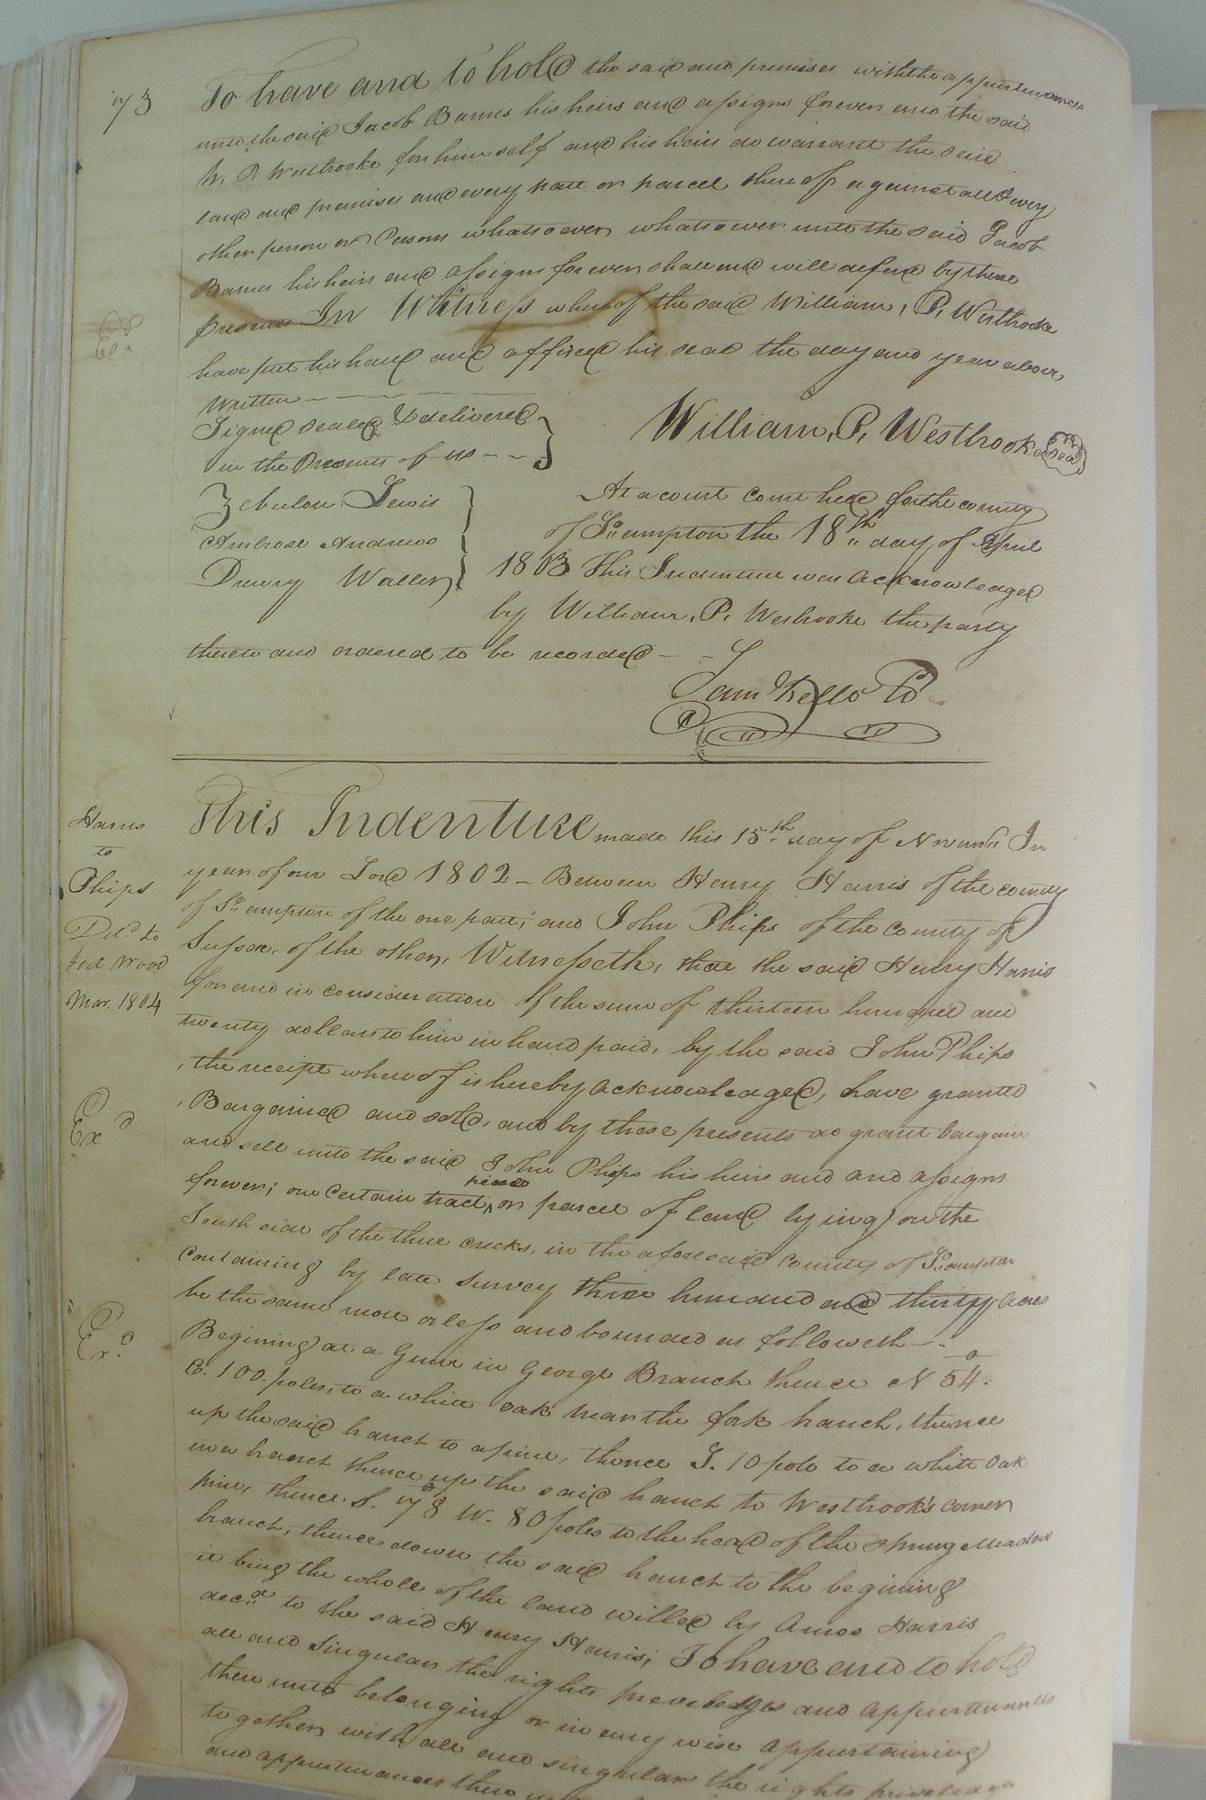 173
To have and to hold the said and premises with the appurtenances
unto the said Jacob Barnes his heirs and assigns forever and the said
W. P. Westbrooke for himself and his heirs do warrant the said
land and premises and every part or parcel thereof against all & every
other person or Persons whatsoever whatsoever unto the said Jacob
Barnes his heirs and assigns forever shall and will defend by these
presents In Witness whereof the said William, P, Westbrooke
have put his hand and affixed his seal the day and year above,
Written
Signed sealed & delivered
in the Presents of us
William, P, Westbrooke seal
Zebulon Lewis
Ambrose Andrews
Drewry Waller
At a court come held for the county
of So. ampton the 18th day of April
1803 This Indenture was Acknowledged
by William, P, Wesbrooke the party
thereto and ordered to be recorded
Sam Kello Co
Harris
to
Phips
Del.d to
Joel Wood
Mar. 1804
Exd
Exd
This Indenture made this 15th day of Novembr In
year of our Lord 1802 - Between Henry Harris of the county
of So. ampton of the one part; and John Phips of the County of
Sussex, of the other, Witnesseth, that the said Henry Harris
for and in consideration of the sum of thirteen hundred and
twenty dollars to him in hand paid, by the said John Phips
, the receipt whereof is hereby Acknowledged, have granted
, Bargained and sold, and by these presents do grant bargain
and sell unto the said John Phips his heirs and and assigns
forever; one Certain tract, piece or parcel of land lying on the
South side of the three creeks, in the aforesaid County of So. ampton
Containing by late survey three hundred and thirty Acres
be the same more or less and bounded as followeth -
Begining at a Gum in George Branch thence N 54.
E. 100. poles, to a white oak near the fork branch, thence
up the said branch to a pine, thence S. 10 pole to a white Oak
in a branch thence up the said branch to Westbrook's corner
pine, thence S. 78 W. 80 poles to the head of the spring Meadow
branch, thence down the said branch to the begining
it being the whole of the land willed by Amos Harris
decd to the said Henry Harris; To have and to hold
all and Singular the rights priveledges and Appurtenances
there unto belonging or in any wise Appurtaining
together with all and singular the rights priveledges
and appurtenances there